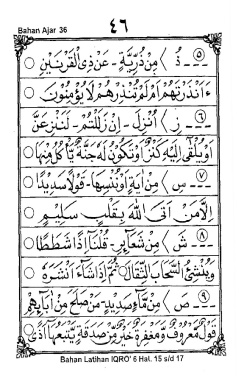 Bahan Ajar 36
٤٦
٥ --- ذُ ﴿ مِنْ ذُرِّيَّةِ - عَنْ ذِي الْقَرْنَيْنِ
ءَاَنْذَرْتَهُمْ اَمْ لَمْ تُنْذِرْهُمْ لَا يُؤْمِنُوْنَ
٦ --- ز ﴿ اُنْزِلَ - اِنْ زَلَلْتُمْ - لَنَنْزِعَنَّ
اَوْ يُلْقٰى اِلَيْهِ كَنْزٌ اَوْ تَكُوْنُ لَهُ جَنَّةٌ يَأْكُلُ مِنْهَا
٧ --- سِ ﴿ مِنْ اٰيَةٍ اَوْ نُنْسِهَا - قَوْلًا سَدِيْدًا
اِلَّا مَنْ اَتَى اللّٰهَ بِقَلْبٍ سَلِيْمٍ
٨ --- شَ ﴿ مِنْ شَعَآئِرِ - قُلْنَا اِذًا شَطَطًا
وَيُنْشِئُ السَّحَابَ الثِّقَالَ ثُمَّ اِذَا شَآءَ اَنْشَرَهُ
٩ --- ص ﴿ مِنْ مَآءٍ صَدِيْدٍ - مَنْ صَلَحَ مِنْ اٰبَآئِهِمْ
قَوْلٌ مَعْرُوْفٌ وَمَغْفِرَةٌ خَيْرٌ مِنْ صَدَقَةٍ يَتْبَعُهَا اَذًى
Bahan Latihan IQRO' 6 Hal. 15 s/d 17